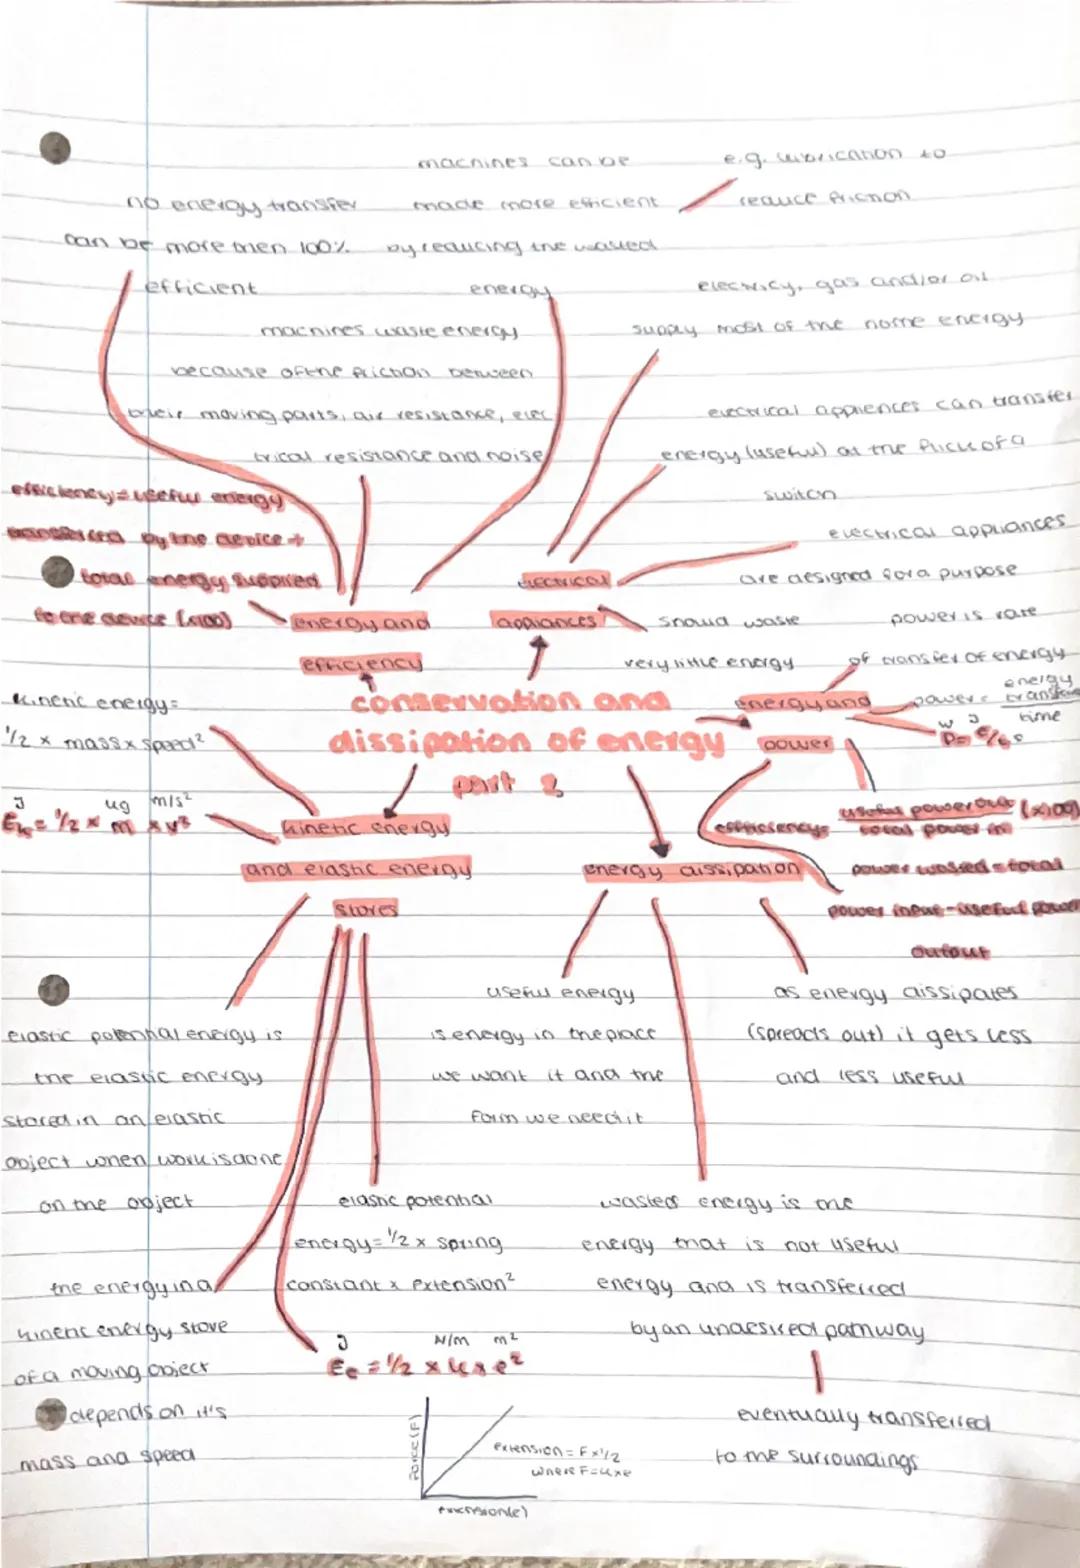 no energy transfer
can be more then 100%
efficient
machines can be
made more efficient
by reducing the wasted
energy
e.g. lubrication to
reduce friction
machines waste energy
because of the friction between
their moving parts, air resistance, elec
trical resistance and noise
electricy, gas and/or oil
supply most of the home energy
electrical appiences can transfer
energy (useful) at the flick of a
switch
electrical appliances
are designed for a purpose
should waste
very little energy
efficiency = useful energy
transferred by the device ÷
total energy supplied
to the device (x100)
energy and
efficiency
electrical
appliances
power is rate
of transfer of energy
energy and
power
power = energy transfer
time
W J
P= E/t s
conservation and
dissipation of energy
part 2
kinetic energy =
1/2 x mass x speed²
J kg m/s²
Ek = 1/2 x m x v²
kinetic energy
and elastic energy
stores
energy dissipation
efficiency = useful power out (x100)
total power in
power wasted = total
power input - useful power
output
elastic potential energy is
the elastic energy
stored in an elastic
object when work is done
on the object
useful energy
is energy in the place
we want it and the
form we need it
as energy dissipates
(spreads out) it gets less
and less useful
the energy in a
kinetic energy store
of a moving object
depends on it's
mass and speed
elastic potential
energy = 1/2 x spring
constant x extension²
J N/m m²
Ee = 1/2 x k x e²
wasted energy is the
energy that is not useful
energy and is transferred
by an undesired pathway
eventually transferred
to the surroundings
Force (F)
extension = F x 1/2
where F = k x e
extension (e)